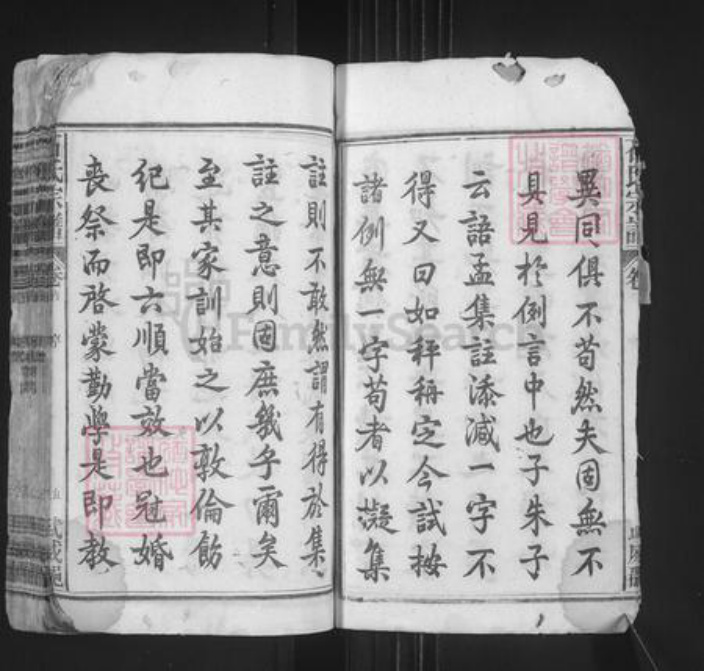 異同俱不苟然夫固無不
具見於例言中也子朱子
云語孟集註添減一字不
得又曰如秤稱定今試按
諸例無一字苟者以擬集
註則不敢然謂有得於集
註之意則固庶幾乎爾矣
至其家訓始之以敦倫飭
紀是即六順當效也冠婚
喪祭而啓蒙勤學是即教
氏宗譜
卷首
序
FamilySearch